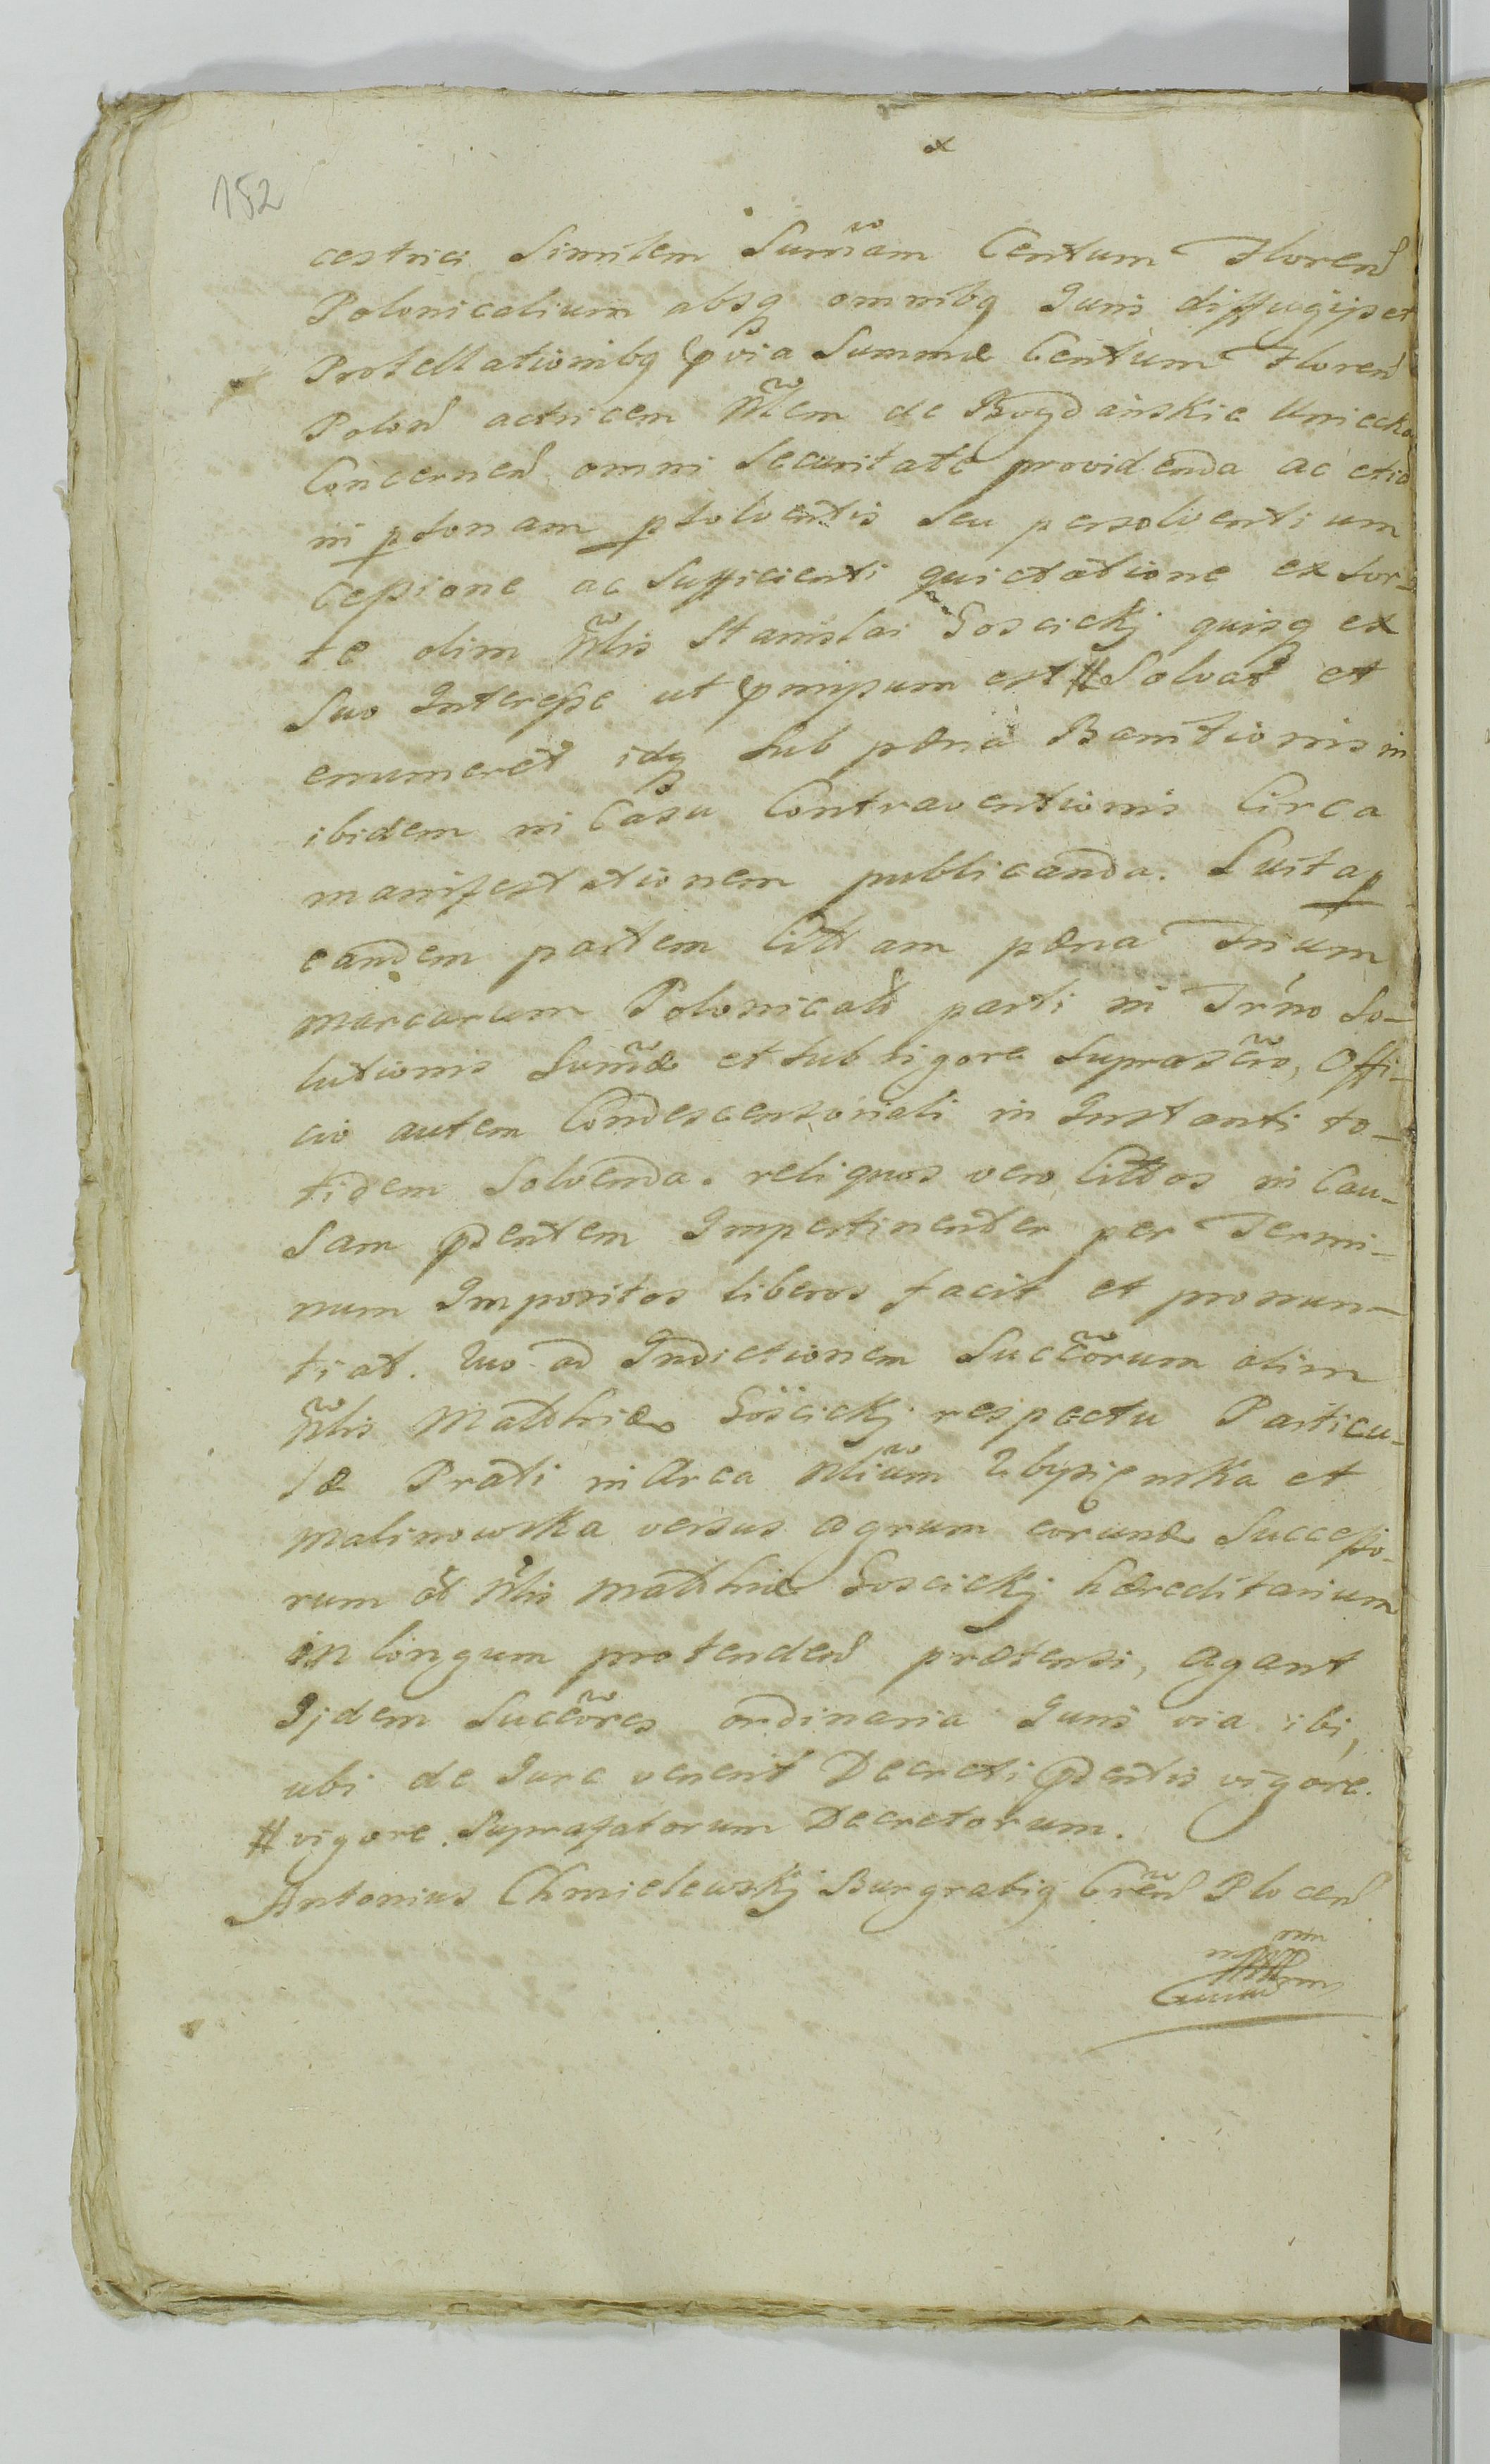 152
cestrici Similem Sum̃am Centum Floren
Polonicalium absq omnibq Juris diffugijs et
Protellationibq pvia Summæ Centum Floren
Polon actricem Nlem de Bogdańskie Uniecka
Concernen omni Securitate providenda ac etiã
in psonam psolventis Seu persolventium
Cessione ac Sufficienti quietatione ex Sor-
te olim Nlis Stanislai Goscickj quisq ex
Suo Interesse ut pmissum est # Solvat et
enumeret idq Sub pœna Bannitionis in
ibidem in Casu Contraventionis Circa
manifestationem publicanda. Luita p
eandem partem Cittam pœna Trium
marcarum Polonicali parti in Trño So-
lutionis Sum̃æ et Sub rigore Suprascro, Offi-
cio autem Condescensoriali in Instanti to-
tidem Solvenda. reliquos vero Cittos in Cau-
Sam pdentem Impertinenter per Termi-
num Impositos liberos facit et pronun-
tiat. Quo ad Indictionem Succõrum olim
Nlis Matthiæ Gościckj respectu Particu-
læ Prati in Area Nlium Zbysieńska et
Malinowska versus agrum eorund Successo-
rum ol Nlis Matthiæ Goscickj hæreditarium
in longum protenden prætensi, agant
Ijdem Succõres ordinaria Juris via ibi,
ubi de Jure venerit Decreti pdentis vigore.
# vigore Suprafatorum Decretorum.
Antonius Chmielewskj Burgrabiq Cren Plocen
mm